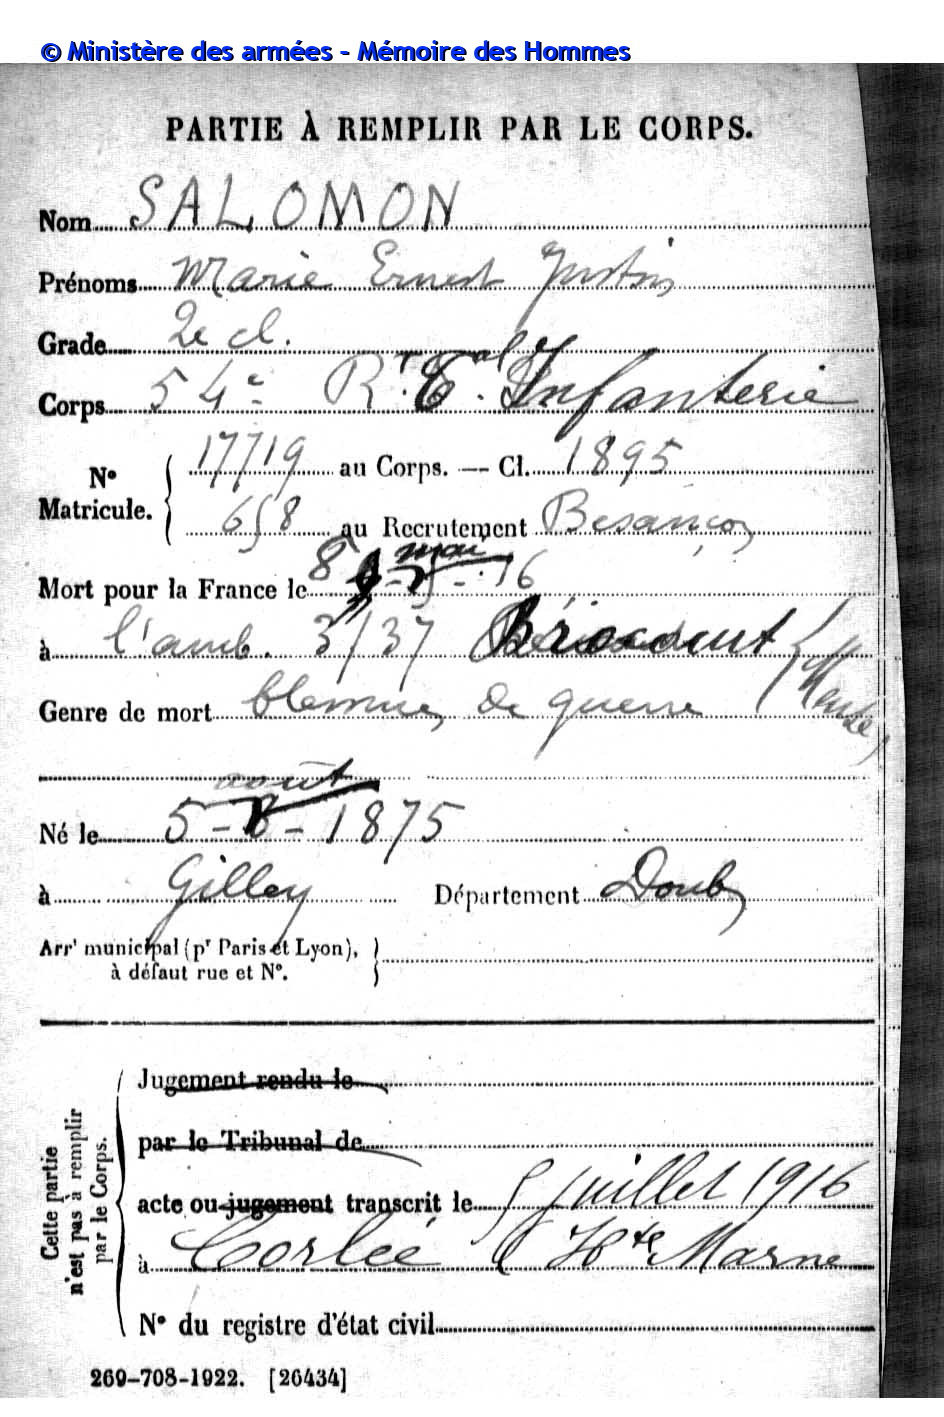 © Ministère des armées - Mémoire des Hommes
PARTIE À REMPLIR PAR LE CORPS.
Nom SALOMON
Prénoms Marie Ernest Justin
Grade 2e cl.
Corps 54e Rt Tal d'Infanterie
No Matricule. 17719 au Corps. — Cl. 1895
658 au Recrutement Besançon
Mort pour la France le 8 mai 16
à l'amb. 3/37 Brocourt (Meuse)
Genre de mort blessures de guerre
août
Né le 5-8-1875
à Gilley Département Doubs
Arrt municipal (pr Paris et Lyon),
à défaut rue et No.
Cette partie
n'est pas à remplir
par le Corps.
Jugement rendu le
par le Tribunal de
acte ou jugement transcrit le 5 juillet 1916
à Corlée Hte Marne
No du registre d'état civil
269-708-1922. [26434]